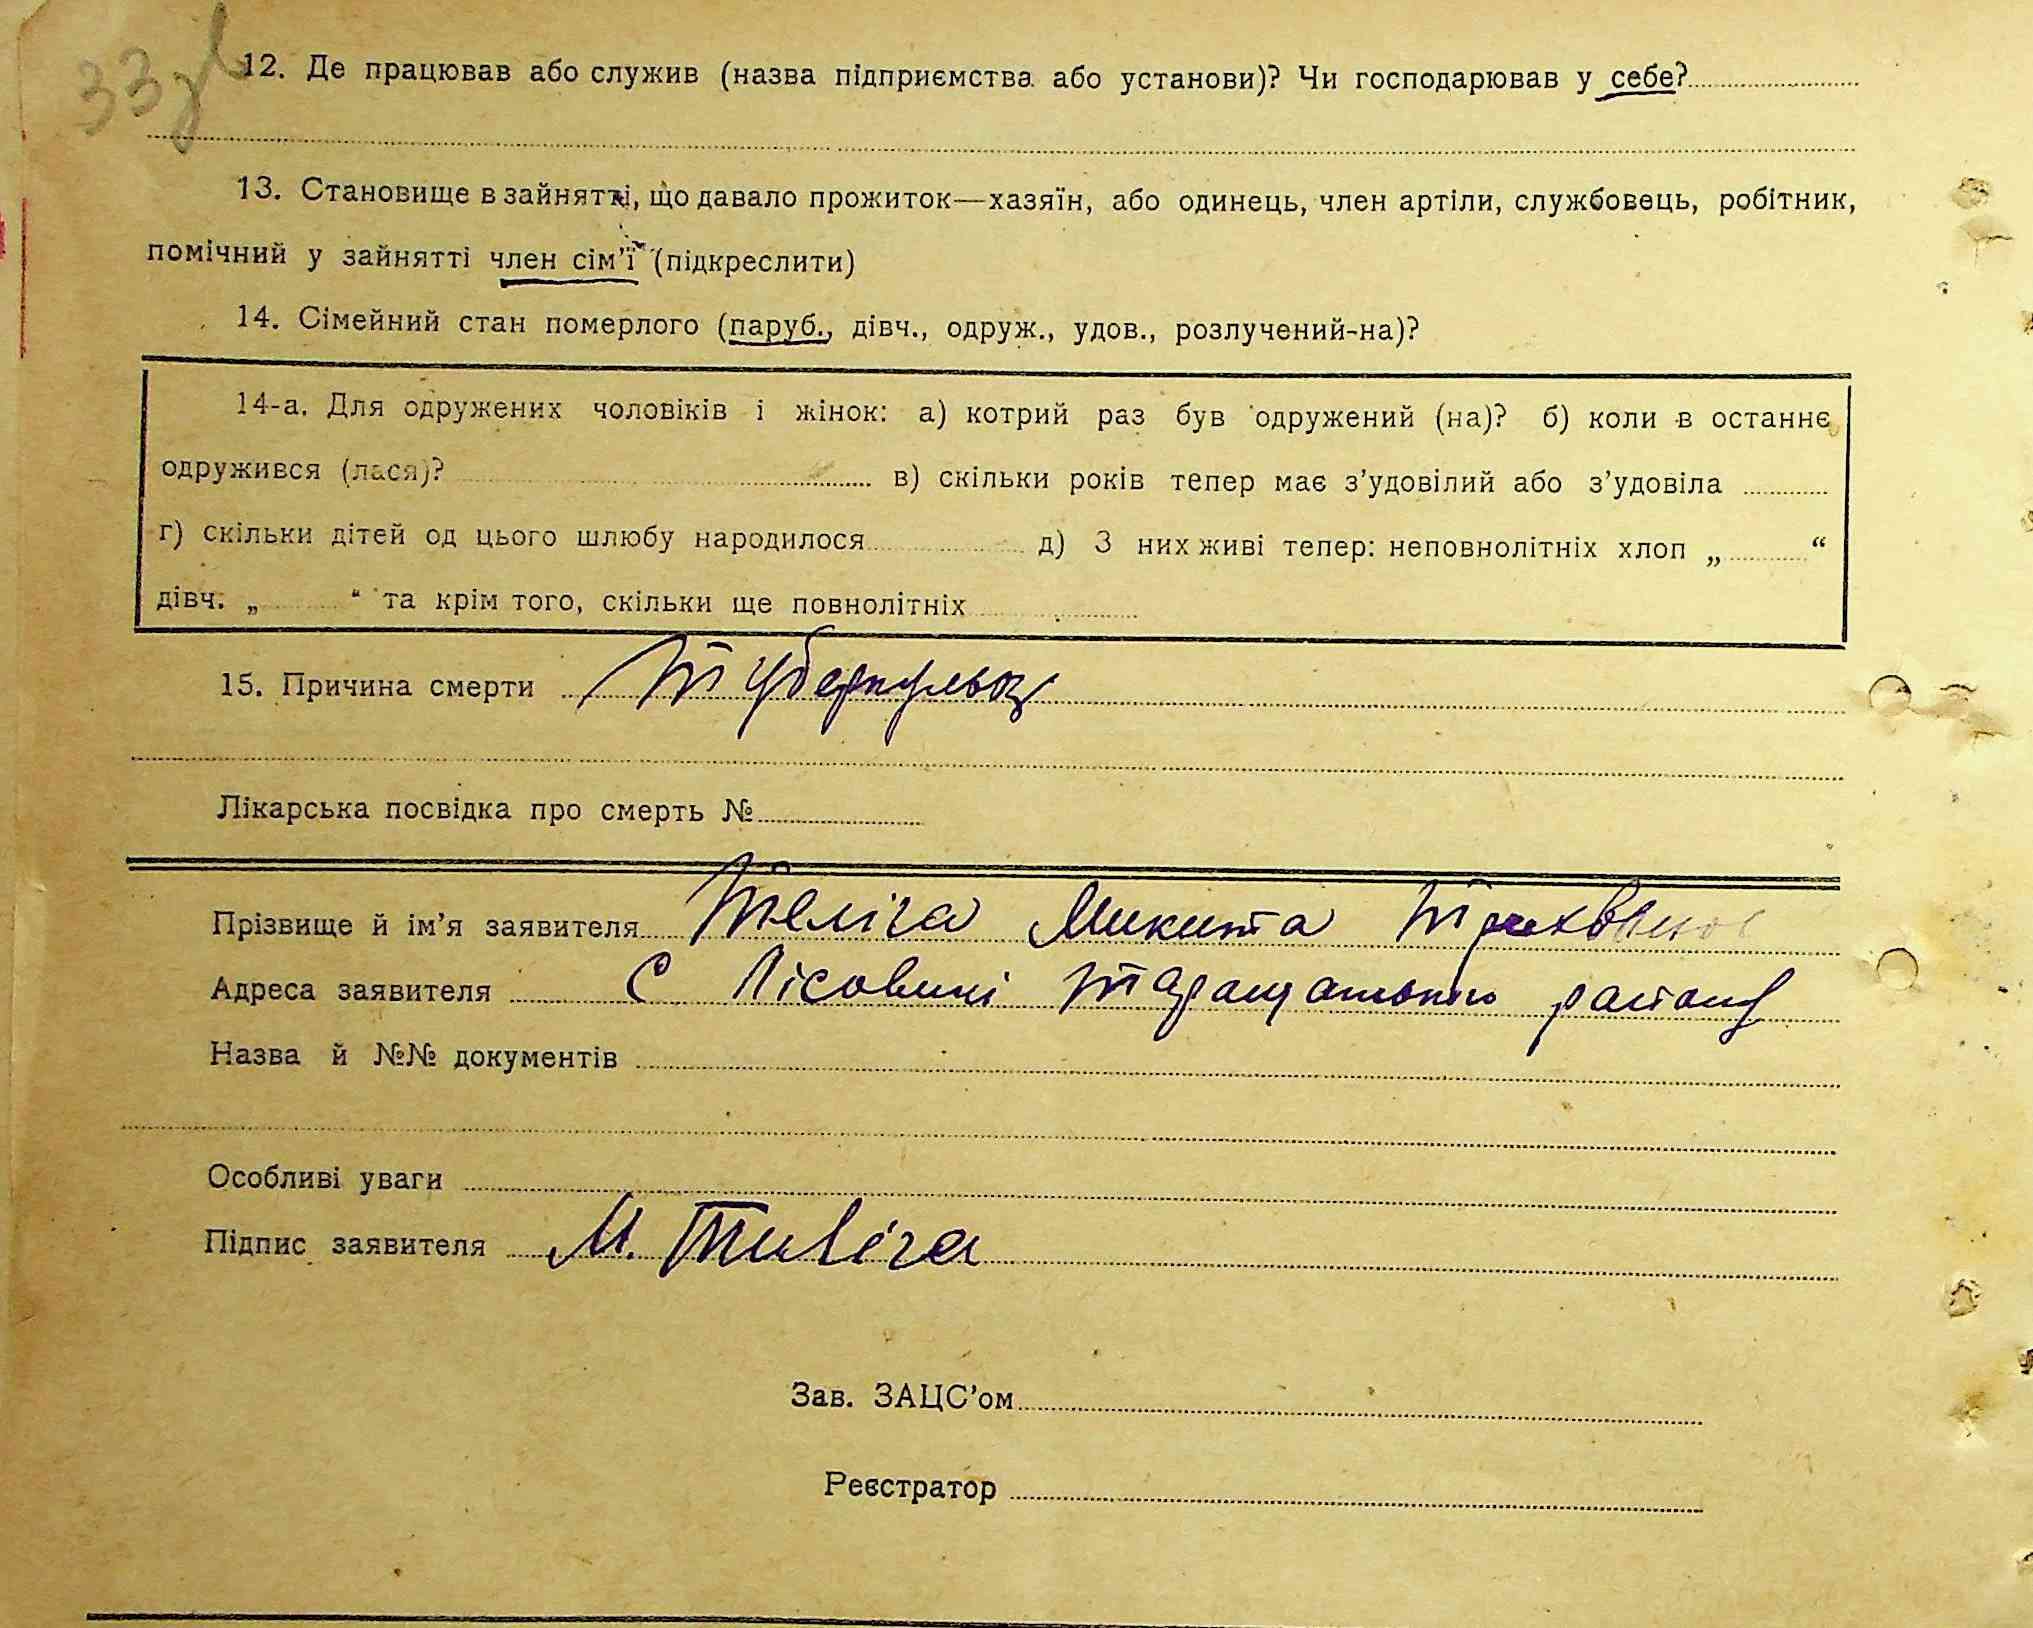 33зв
12. Де працював або служив (назва підприємства або установи)? Чи господарював у себе?
13. Становище в зайнятті, що давало прожиток—хазяїн, або одинець, член артіли, службовець, робітник,
помічний у зайнятті член сім’ї (підкреслити)
14. Сімейний стан померлого (паруб., дівч., одруж., удов., розлучений-на)?
14-а. Для одружених чоловіків і жінок: а) котрий раз був одружений (на)? б) коли в останнє
одружився (лася)? в) скільки років тепер має з’удовілий або з’удовіла
г) скільки дітей од цього шлюбу народилося д) З них живі тепер: неповнолітніх хлоп „ “
дівч. „ “ та крім того, скільки ще повнолітніх
15. Причина смерти Туберкульоз
Лікарська посвідка про смерть №
Прізвище й ім’я заявителя Теліга Микита
Адреса заявителя С Лісовичі Таращанського району
Назва й №№ документів
Особливі уваги
Підпис заявителя М. Теліга
Зав. ЗАЦС’ом
Реєстратор